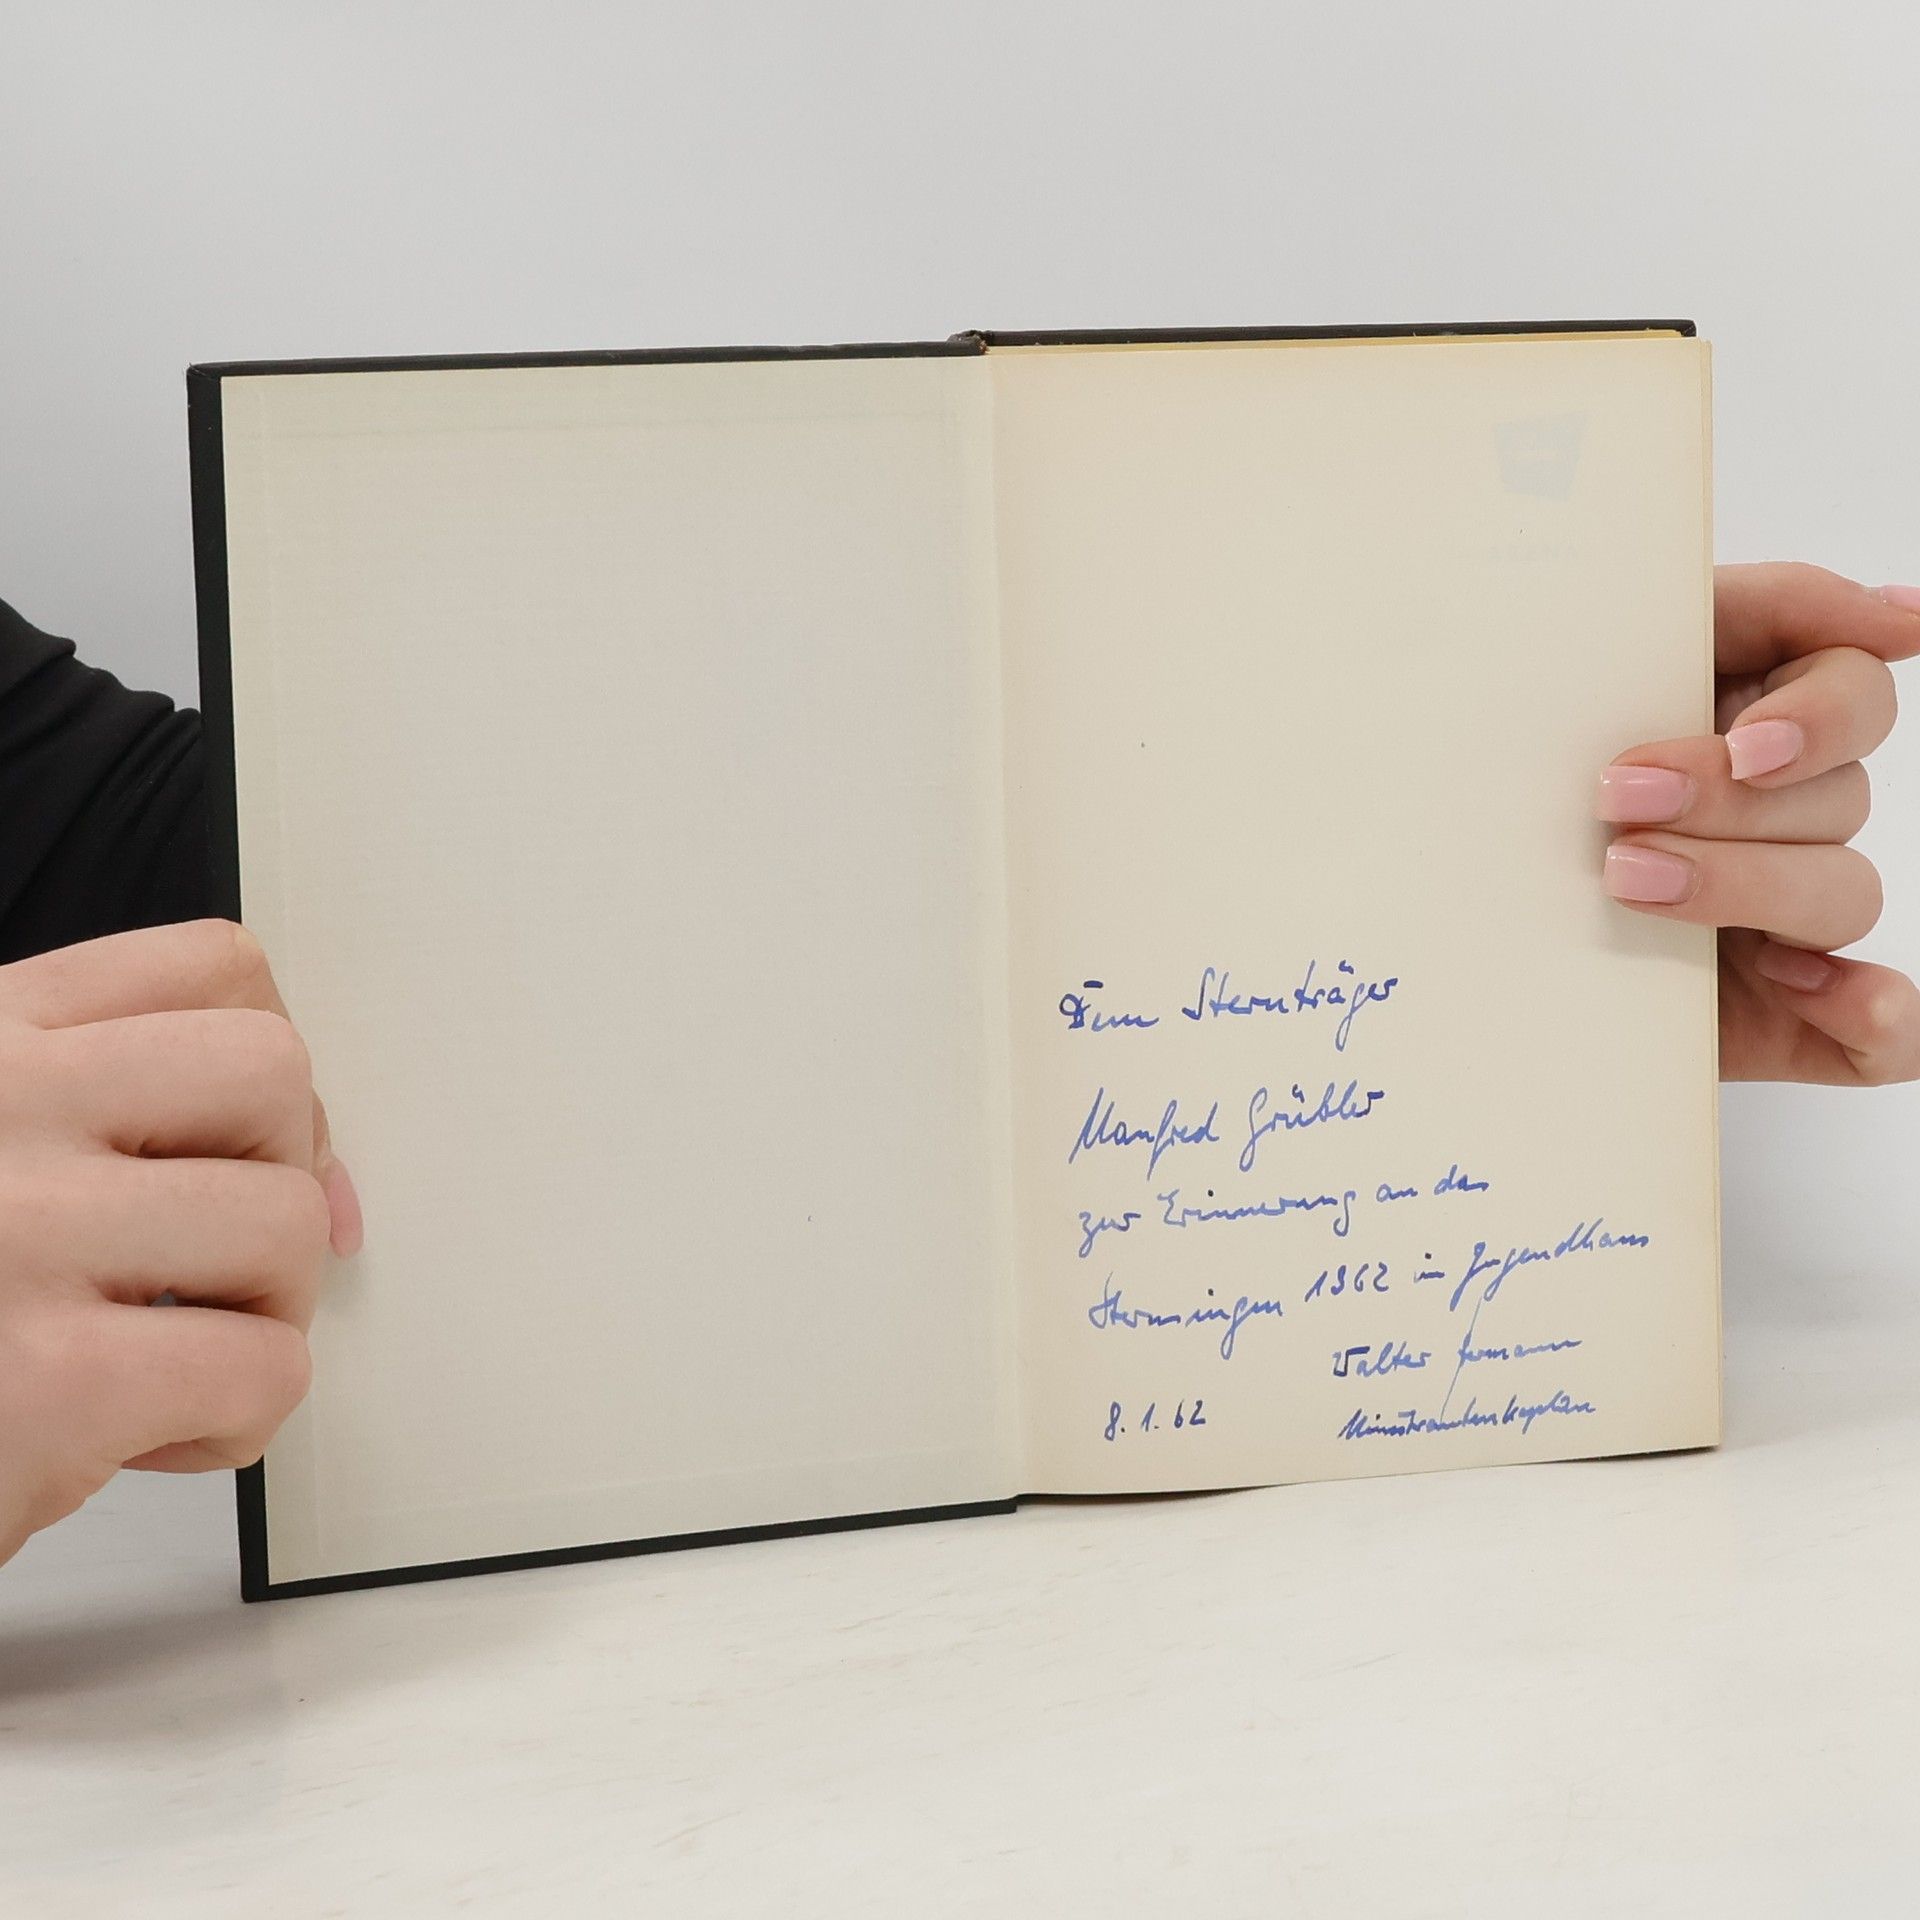 Dem Sternträger
Manfred Grübler
zur Erinnerung an das
Sternsingen 1962 im Jugendhaus
Walter
8.1.62
Ministrantenkaplan